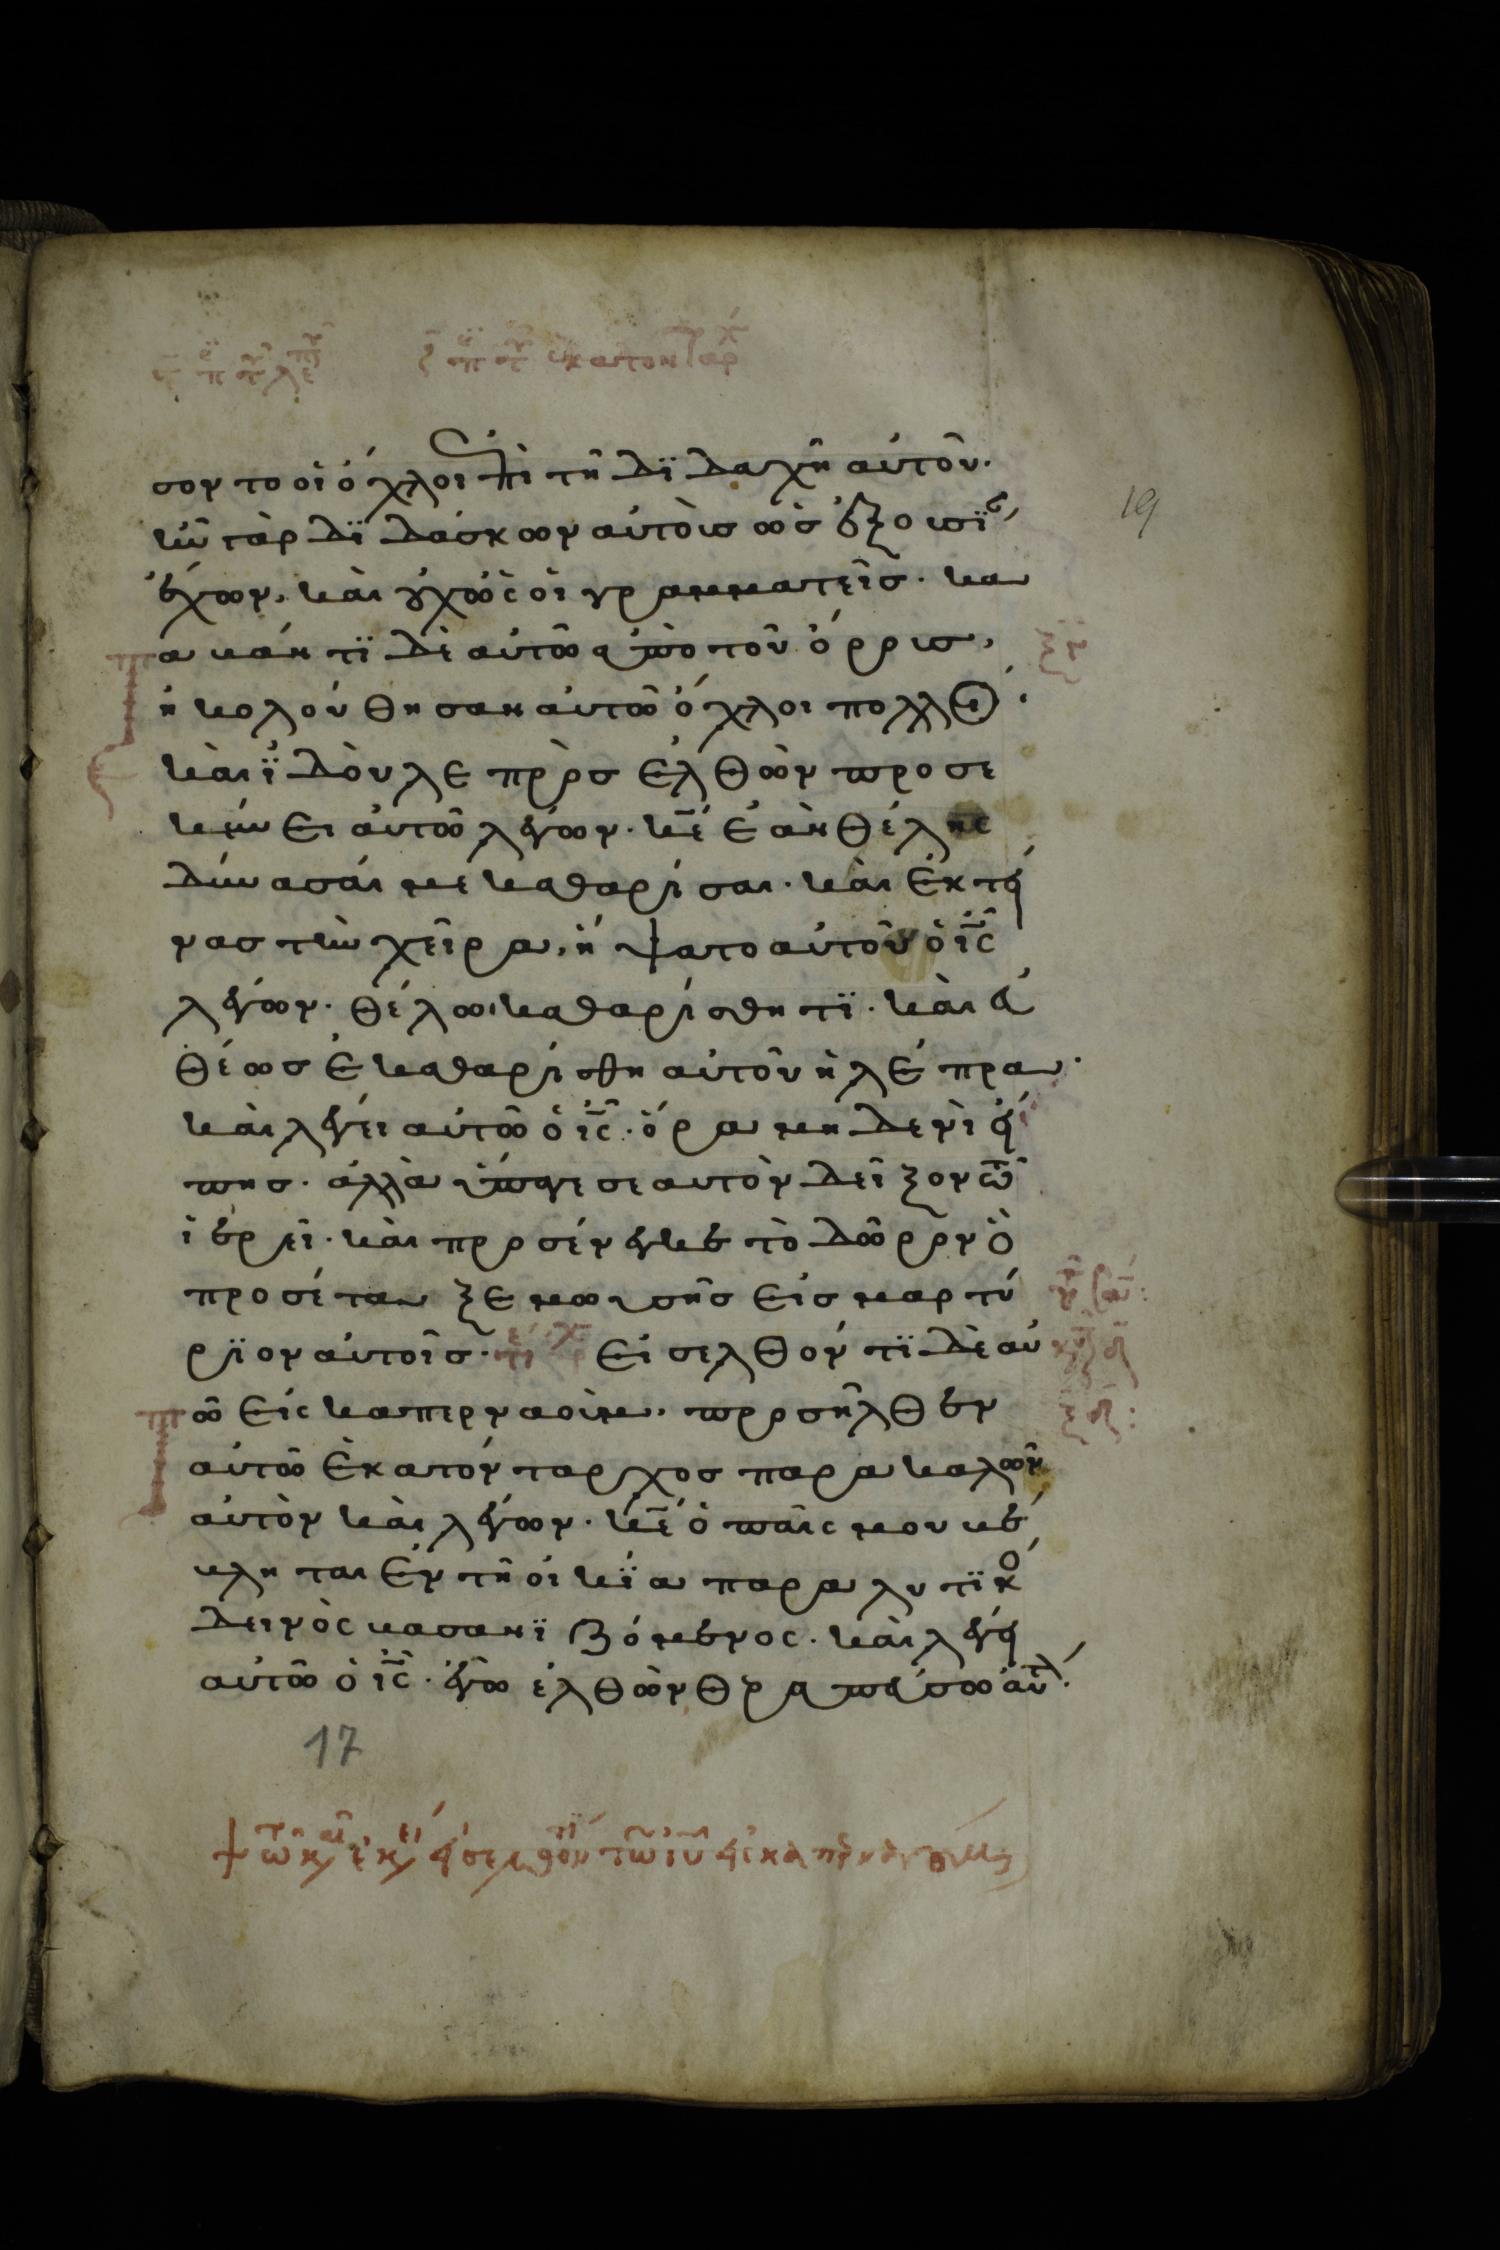 σοντο οἱ ὄχλοι ἐπὶ τῆ διδαχῆ αὐτοῦ.
ἦν γὰρ διδάσκων αὐτοὺς ὡς ἐξουσί
ἔχων, καὶ οὐχ ὡς οἱ γραμματεῖς. κα
α βάντι δὲ αὐτῶ ἀπὸ τοῦ ὄρους,
ἠκολούθησαν αὐτῶ ὄχλοι πολλοί.
καὶ ἰδοὺ λεπρὸς ἐλθὼν προσε
κύνει αὐτῶ λέγων. κε ἐὰν θέλης
δύνασαί με καθαρίσαι. καὶ ἐκτεί
νας τὴν χεῖρα, ἥψατο αὐτοῦ ὁ ις
λέγων. θέλω, καθαρίσθητι. καὶ εὐ
θέως ἐκαθαρίσθη αὐτοῦ ἡ λέπρα.
καὶ λέγει αὐτῶ ὁ ις. ὅρα μηδενὶ εἴ
πης. ἀλλὰ ὕπαγε σεαυτὸν δεῖξον τῶ
ἱερεῖ. καὶ προσένεγκε τὸ δῶρον ὃ
προσέταξε μωυσῆς εἰς μαρτύ
ριον αὐτοῖς. Εἰσελθόντι δὲ αὐ
ῶ εἰς καπερναούμ, προσῆλθεν
αὐτῶ ἑκατόνταρχος παρακαλῶν
αὐτὸν καὶ λέγων. κε ὁ παῖς μου βέ
βληται ἐν τῆ οἰκία παραλυτικὸ
δεινὸς βασανιζόμενος. καὶ λέγει
αὐτῶ ὁ ις. ἐγὼ ἐλθὼν θεραπεύσω αὐτ
19
17